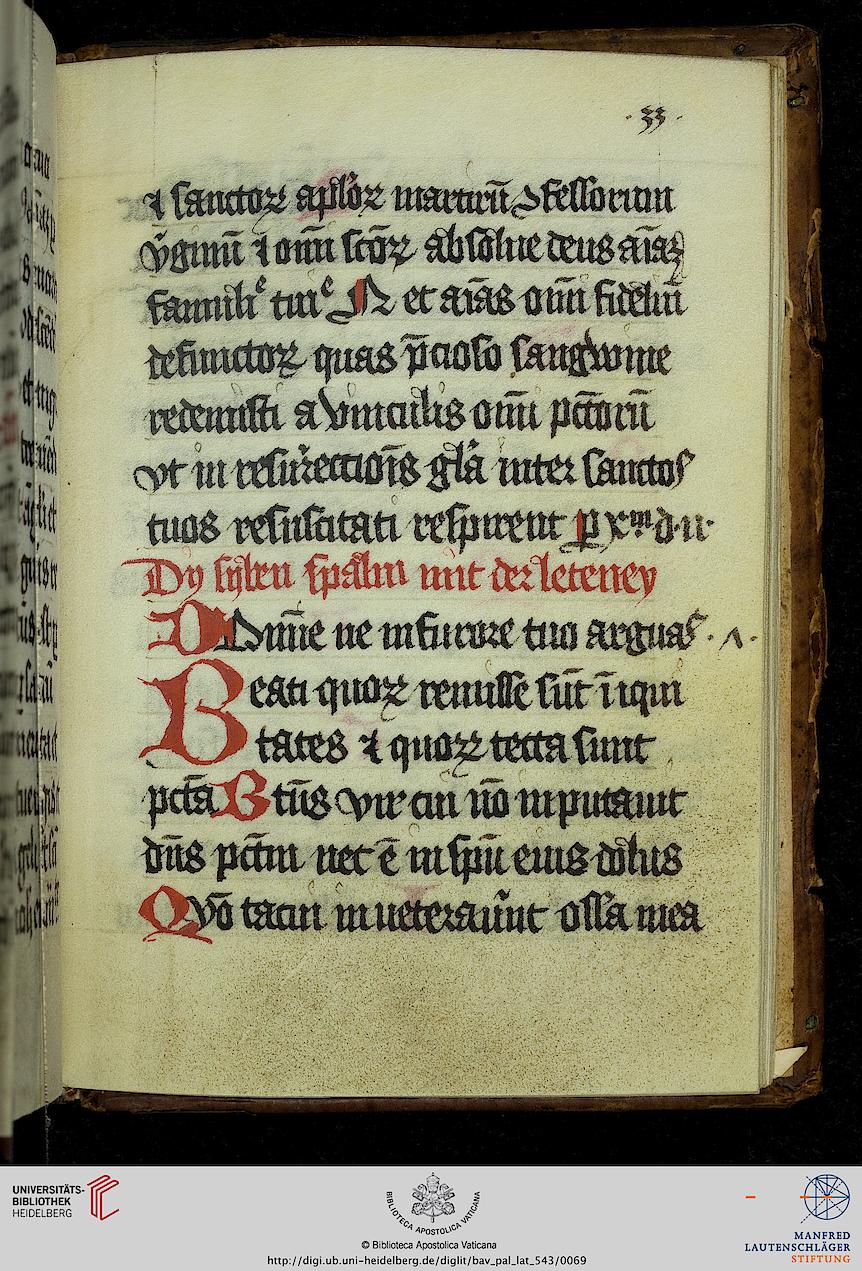 · 33 ·
⁊ sanctoꝝ apl'oꝝ martirū ↄfessorum
v̾ginū ⁊ om̄ scōꝝ absolue deus aīaꝝ
famuliᵉ tuiᵉ N et aīas om̄ fideliū
defunctoꝝ quas p̄cioso sangwine
redemisti a vinculis om̄ pctōrū
vt in resurrectiōīs gl'ā inter sanctos
tuos resuscitati respirent p xᵐ d n
Dy sẏben spalm mit der leteney
Domīe ne in furore tuo arguas · ʌ ·
Beati quoꝝ remisse sūt īiqui
tates ⁊ quoꝝ tecta sunt
pctā Btūs vir cui nō inputauit
dūs pctm̄ nec ē in spū eius dolus
Qvō tacui inueterau̾unt ossa mea
UNIVERSITÄTS-
BIBLIOTHEK
HEIDELBERG
BIBLIOTECA APOSTOLICA VATICANA
© Biblioteca Apostolica Vaticana
http://digi.ub.uni-heidelberg.de/diglit/bav_pal_lat_543/0069
MANFRED
LAUTENSCHLÄGER
STIFTUNG